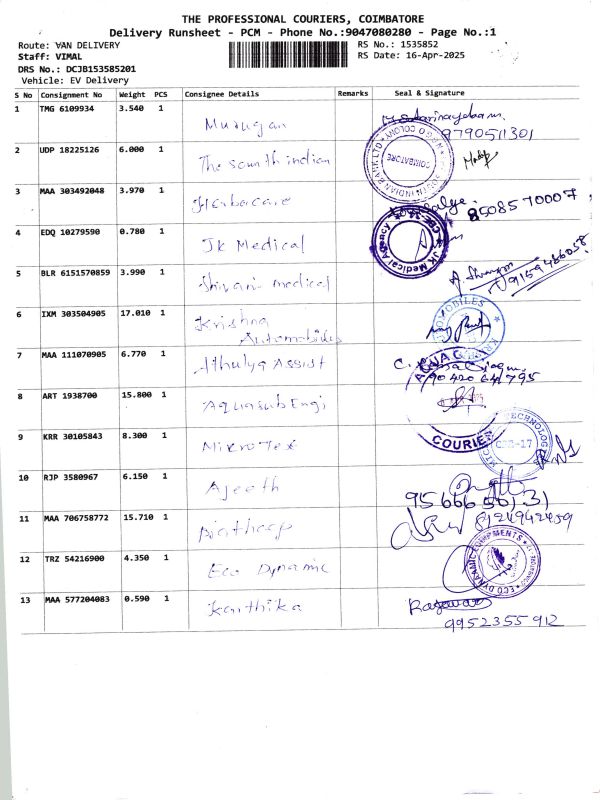 THE PROFESSIONAL COURIERS, COIMBATORE
Delivery Runsheet - PCM - Phone No.:9047080280 - Page No.:1
Route: VAN DELIVERY
RS No.: 1535852
Staff: VIMAL
RS Date: 16-Apr-2025
DRS No.: DCJB153585201
Vehicle: EV Delivery
S No Consignment No Weight PCS Consignee Details Remarks Seal & Signature
1 TMG 6109934 3.540 1 Murugan
9790511301
2 UDP 18225126 6.000 1 The south indian
COIMBATORE
3 MAA 303492048 3.970 1 Herbacare 8508570007
4 EDQ 10279590 0.780 1 JK Medical
JK Medical Agency
5 BLR 6151570859 3.990 1 Shivani medical
9159486058
6 IXM 303504905 17.010 1 Krishna
Automobiles
7 MAA 111070905 6.770 1 Athulya Assist
8 ART 1938700 15.800 1 Aquasub Engi
COURIER
9 KRR 30105843 8.300 1 Mikrotex
10 RJP 3580967 6.150 1 Ajeeth
11 MAA 706758772 15.710 1 8124942459
12 TRZ 54216900 4.350 1 Eco Dynamic
ECO DYNAMIC EQUIPMENTS
13 MAA 577204083 0.590 1 Karthika
9952355912